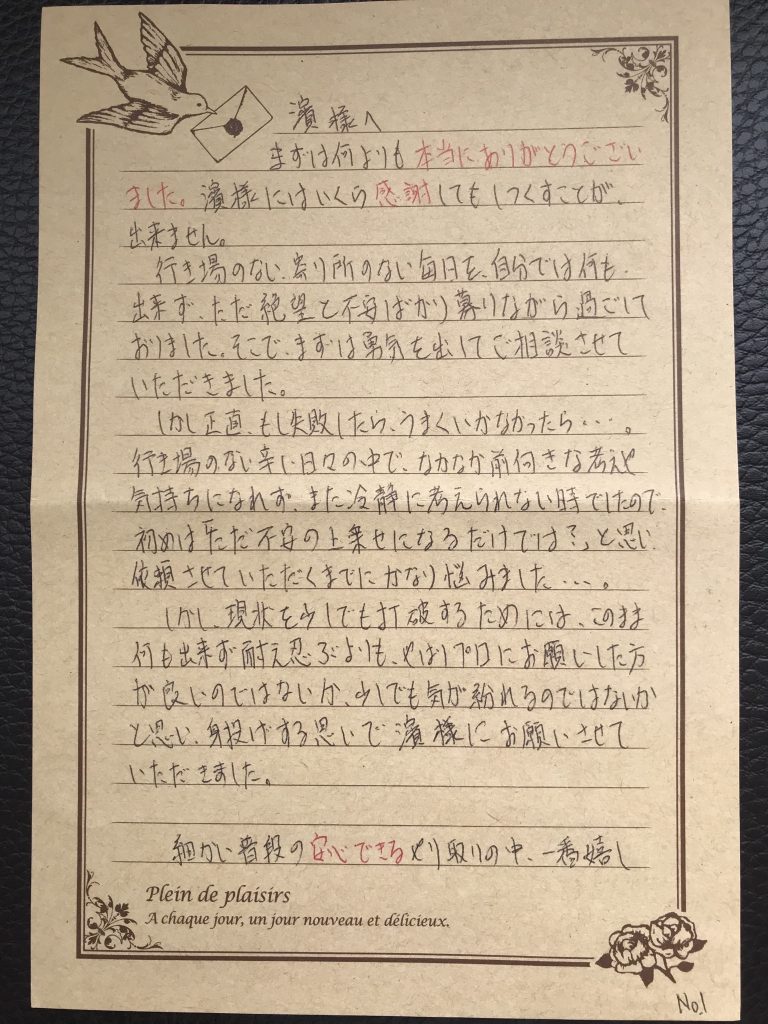 濱様へ
まずは何よりも本当にありがとうござい
ました。濱様にはいくら感謝してもしつくすことが、
出来ません。
行き場のない、寄り所のない毎日を、自分では何も、
出来ず、ただ絶望と不安ばかり募りながら過ごして
おりました。そこで、まずは勇気を出してご相談させて
いただきました。
しかし正直、もし失敗したら、うまくいかなかったら・・・。
行き場のない辛い日々の中で、なかなか前向きな考えや
気持ちになれず、また冷静に考えられない時でしたので、
初めは「ただ不安の上乗せになるだけでは?」と思い
依頼させていただくまでにかなり悩みました・・・。
しかし、現状を少しでも打破するためには、このまま
何も出来ず耐え忍ぶよりも、やはりプロにお願いした方
が良いのではないか、少しでも気が紛れるのではないか
と思い、身投げする思いで濱様にお願いさせて
いただきました。
細かい普段の安心できるやり取りの中、一番嬉し
Plein de plaisirs
A chaque jour, un jour nouveau et délicieux.
No.1